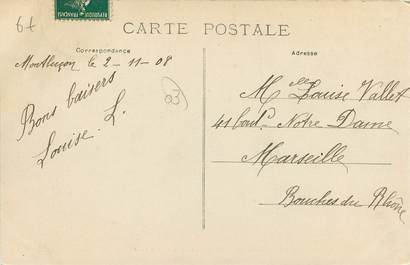 6t
CARTE POSTALE
Correspondance
Adresse
Montluçon le 2-11-08
Bons baisers
Louise. L.
Melle Louise Vallet
41 boul.d Notre Dame
Marseille
Bouches du Rhône